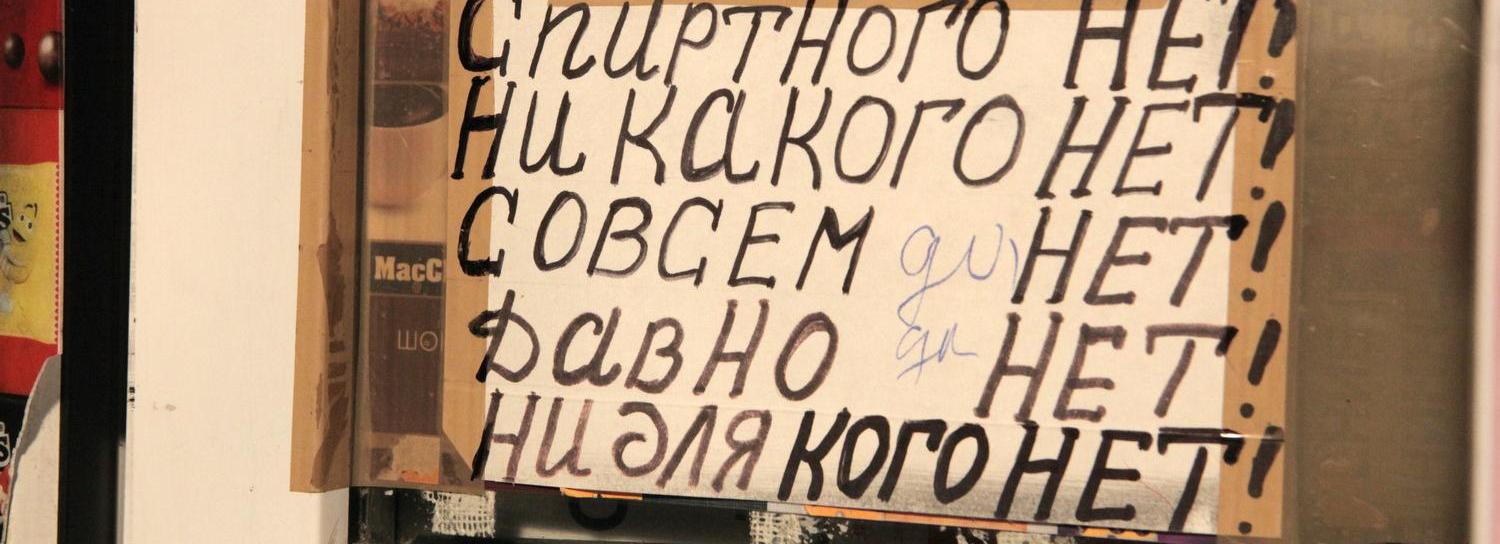 Спиртного НЕТ!
НИ КАКОГО НЕТ!
СОВСЕМ НЕТ!
ДАВНО НЕТ!
НИ ДЛЯ КОГО НЕТ!
MacC